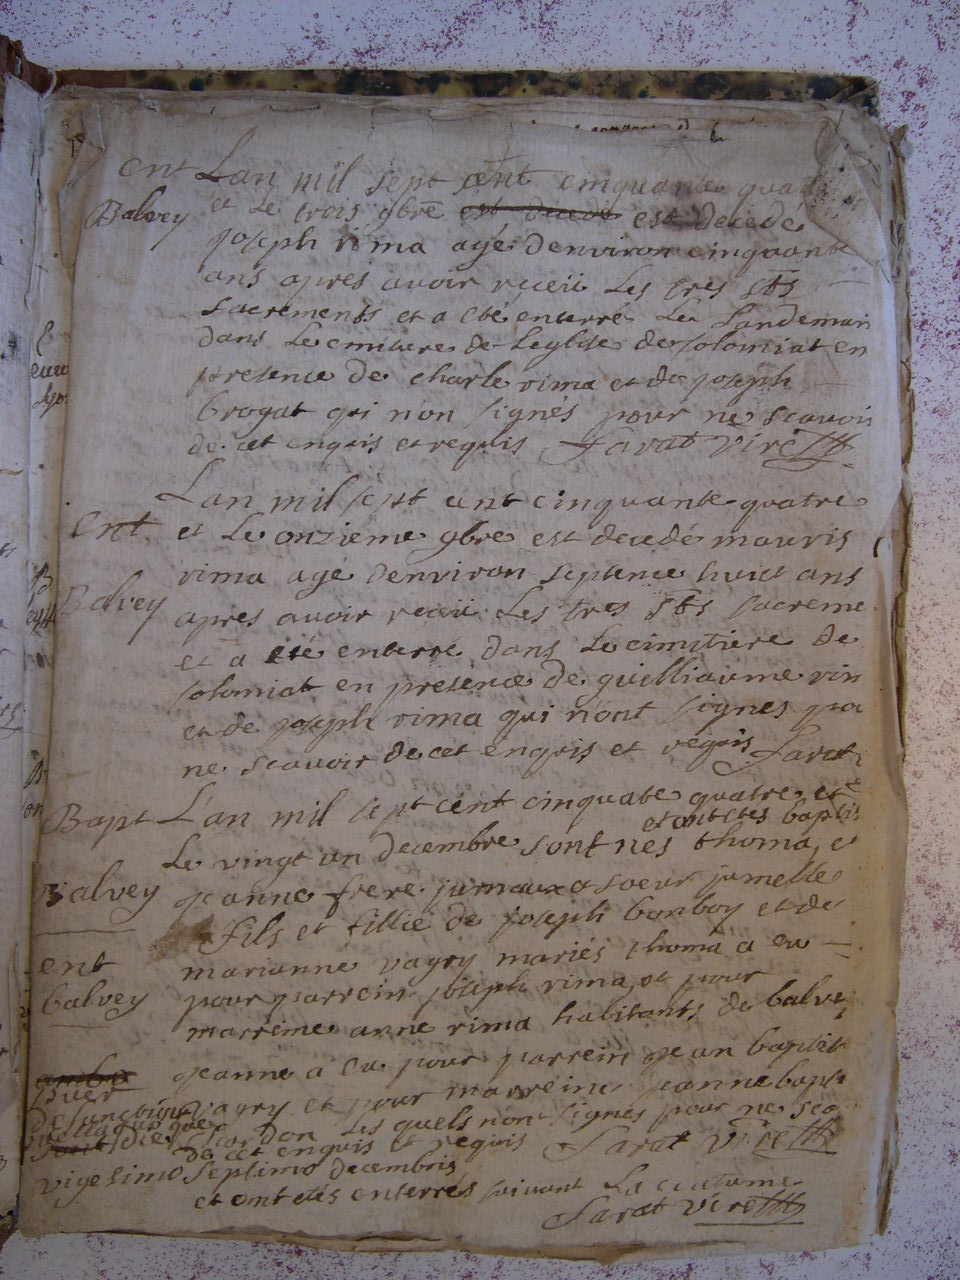 ent Lan mil sept cent cinquante quatr
Balvey et Le trois 9bre est decedé est decede
joseph rima agé denviron cinquante
ans apres avoir receü Les tres Sts
sacrements et a eté enterré Le Landemain
dans Le cmitiere de Leglise de solomiat en
presence de charle rima et de joseph
brogat qui n'on signés pour ne scavoir
de cet enquis et requis Sarat Vire
Lan mil sept cent cinquante quatre
ent. et Le onzieme 9bre est decedé mauris
rima age denviron septente huict ans
Balvey apres avoir receü Les tres Sts sacreme
et a eté enterré dans Le cimitiere de
solomiat en presence de guilliaume rim
et de joseph rima qui n'ont signes pou
ne scavoir de cet enquis et requis Sarat
Bapt L'an mil sept cent cinquate quatre et
et ont etes baptis
Le vingt un decembre sont nes thoma, et
Balvey jeanne frere jumaux et soeur jumelle
fils et fillie de joseph bonboy et de
ent marianne vagry mariés thoma a eu
balvey pour parrein joseph rima et pour
marreine anne rima habitants de balvey
jeanne a eu pour parrein jean baptist
puer vagry et pour marreine jeanne bapt
chardon Les quels n'ont signés pour ne sca
de cet enquis et requis Sarat Vire
vigesimo septimo decembris
et ont etes enterrés suivant La cutume
Sarat Vire